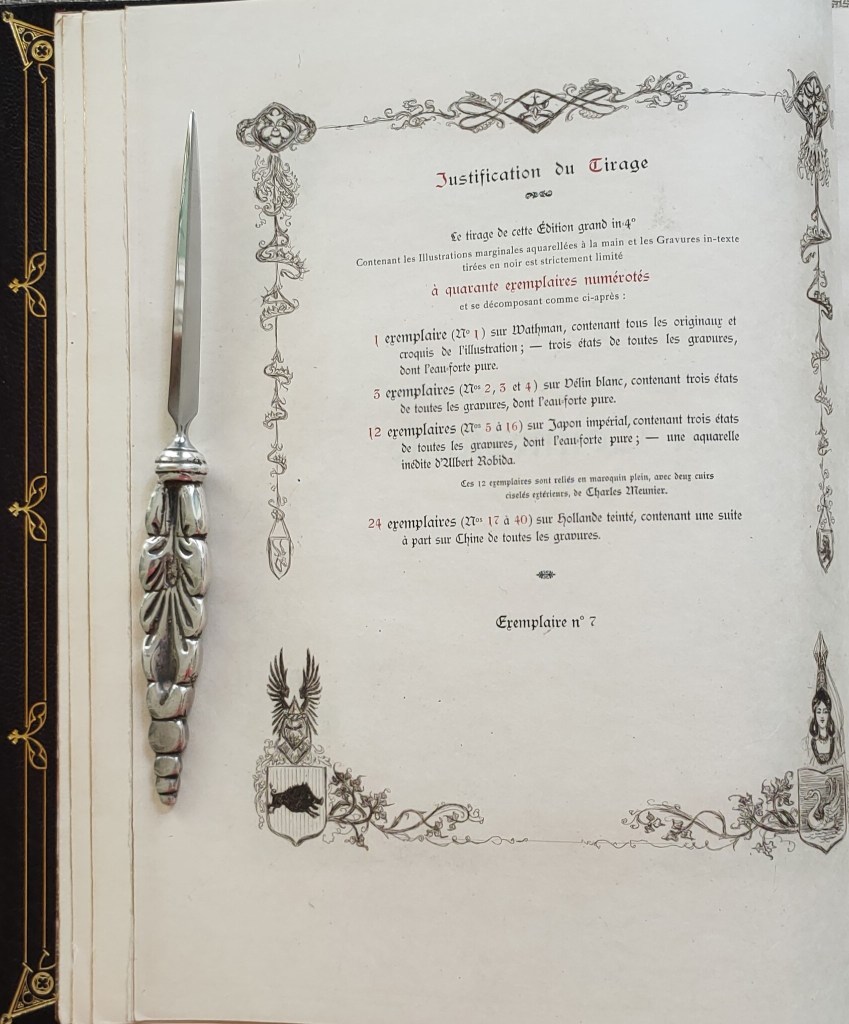 Justification du Tirage
Le tirage de cette Édition grand in-4°
Contenant les Illustrations marginales aquarellées à la main et les Gravures in-texte
tirées en noir est strictement limité
à quarante exemplaires numérotés
et se décomposant comme ci-après :
1 exemplaire (No 1) sur Wathman, contenant tous les originaux et
croquis de l'illustration ; — trois états de toutes les gravures,
dont l'eau-forte pure.
3 exemplaires (Nos 2, 3 et 4) sur Vélin blanc, contenant trois états
de toutes les gravures, dont l'eau-forte pure.
12 exemplaires (Nos 5 à 16) sur Japon impérial, contenant trois états
de toutes les gravures, dont l'eau-forte pure ; — une aquarelle
inédite d'Albert Robida.
Ces 12 exemplaires sont reliés en maroquin plein, avec deux cuirs
ciselés extérieurs, de Charles Meunier.
24 exemplaires (Nos 17 à 40) sur Hollande teinté, contenant une suite
à part sur Chine de toutes les gravures.
Exemplaire n° 7